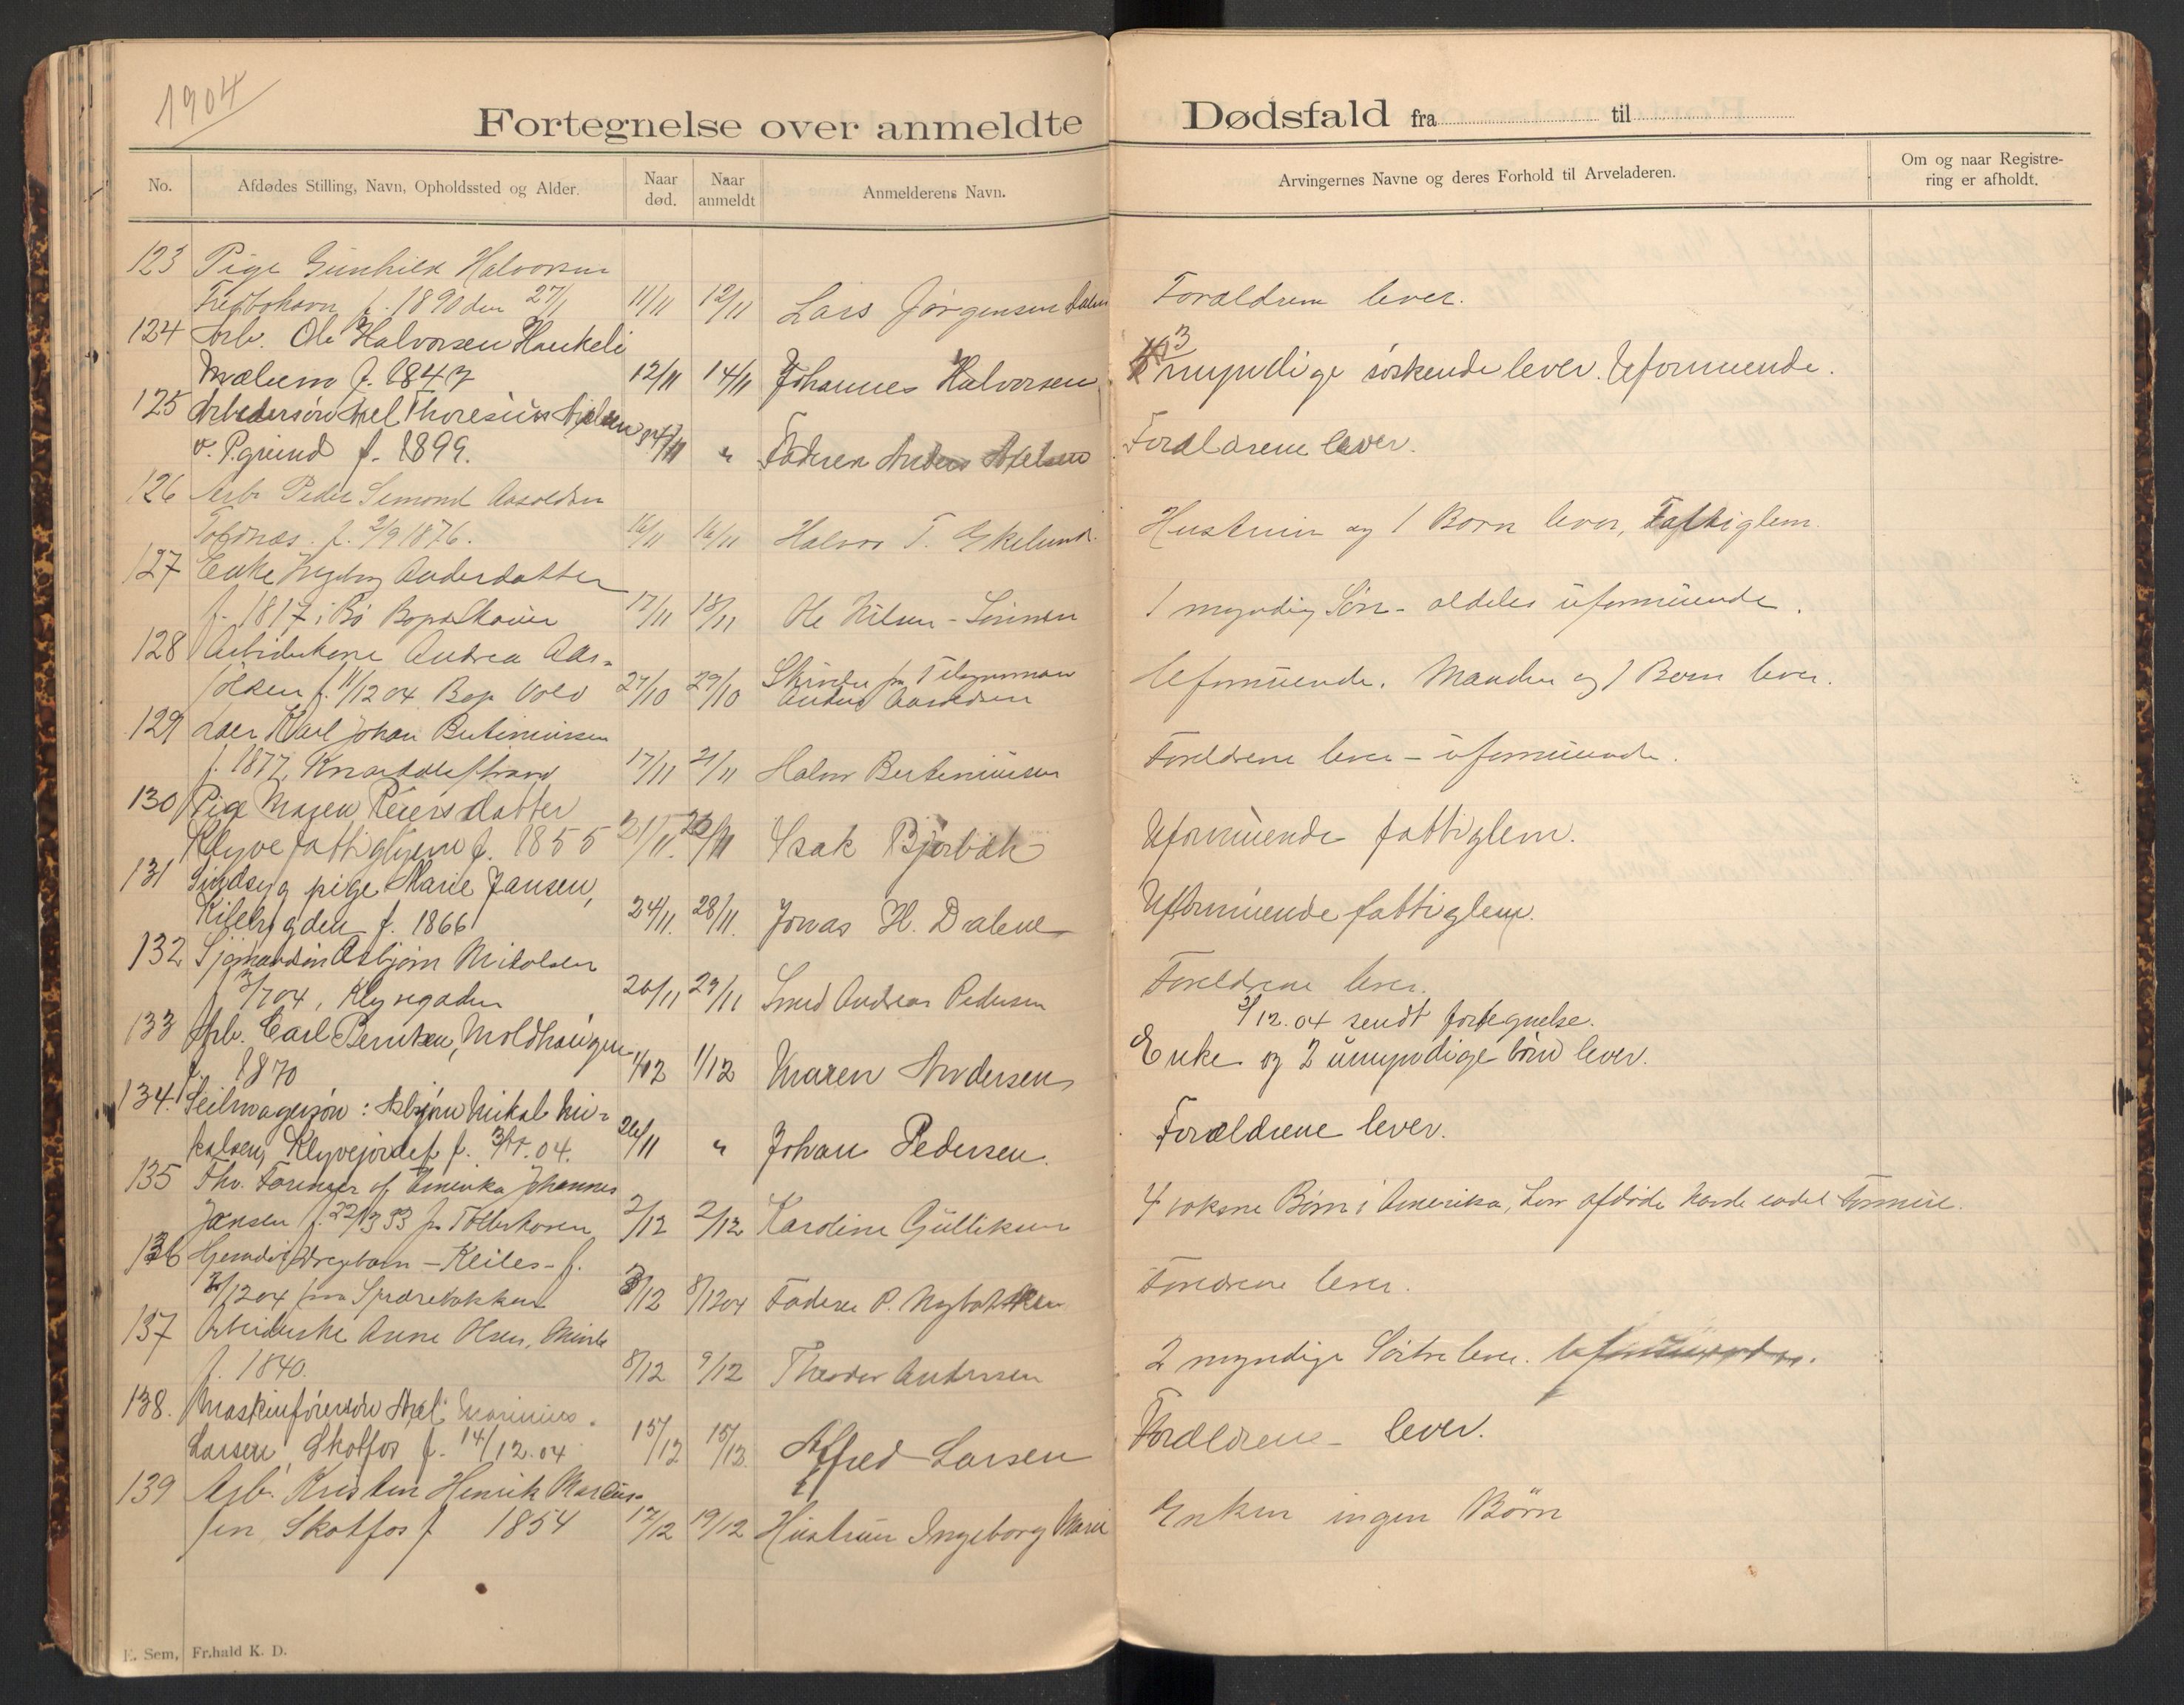 1904
Fortegnelse over anmeldte Dødsfald fra til
No. Afdødes Stilling, Navn, Opholdssted og Alder. Naar død. Naar anmeldt Anmelderens Navn. Arvingernes Navne og deres Forhold til Arveladeren. Om og naar Registrering er afholdt.
123 Pige Gunhild Halvorsen
f. 1890 den 27/1 11/11 12/11 Lars Jørgensen Forældrene lever.
124 Arb. Ole Halvorsen Haukeli
Mælum f. 1847 12/11 14/11 Johannes Halvorsen 3 myndige søskende lever. Uformuende.
125 Arbedersøn Axel Thoresius Axelsen
v. Pgrund f. 1899. /11 " Faderen Anders Axelsen Forældrene lever.
126 Arb. Peder Semond Aasoldsen
Tofdnæs. f. 2/9 1876. 16/11 16/11 Halvor T. Ekelund. Hustruen og 1 Barn lever, Fattiglem.
127 Enke Ingeborg Andersdatter
f. 1817 i Bø Bopæl 17/11 18/11 Ole Nilsen 1 myndig Søn - aldeles uformuende.
128 Arbeiderkone Andrea Aas-
f. 11/12 04 Bop Vold 27/10 29/10 Anders Uformuende. Manden og 1 Barn lever.
129 Karl Johan Bertiniussen
f. 1877, Knardalsstrand 17/11 21/11 Halvor Bertiniussen Forældrene lever - uformuende.
130 Pige Maren Reiersdatter
Klyve fattighjem f. 1855 21/11. /11 Isak Bjørbæk Uformuende fattiglem.
131 Sindsyg pige Marie Jansen,
Kilebygden f. 1866 24/11. 28/11. Jonas H. Dalene Uformuende fattiglem.
132 Sjømandsøn Asbjørn Mikalsen
f. 3/7 04, Klyvegaden 26/11 29/11 Smed Andreas Pedersen Forældrene lever.
/12.04 sendt fortegnelse.
133 Arb. Carl Berntsen, Moldhaugen
f. 1870 1/12 1/12 Maren Andersen Enke og 2 umyndige børn lever.
134. Seilmagersøn: Asbjørn Mikal Mi-
kalsen, Klyvejordet f. 3/7.04. 26/11 " Johan Pedersen. Forældrene lever.
135 Fhv. Farmer af Amerika Johannes
Jansen f. 22/3 33 2/12 2/12 Karoline Gulliksen 4 voksne Børn i Amerika,
136
/12 04 fra 3/12 8/12 04 Faderen P. Forældrene lever.
137 Arbeiderske Anne Olsen,
f. 1840. 8/12 9/12 Theodor Andersen 2 myndige Søstre lever.
138. Maskinførersøn Axel Marinius
Larsen, Skotfos f. 14/12.04 15/12 15/12 Alfred Larsen Forældrene lever.
139 Arb. Kristen Henrik Marcus-
sen Skotfos f 1854 17/12 19/12 Hustruen Ingeborg Marie Enken ingen Børn
E. Sem, Fr.hald K. D.